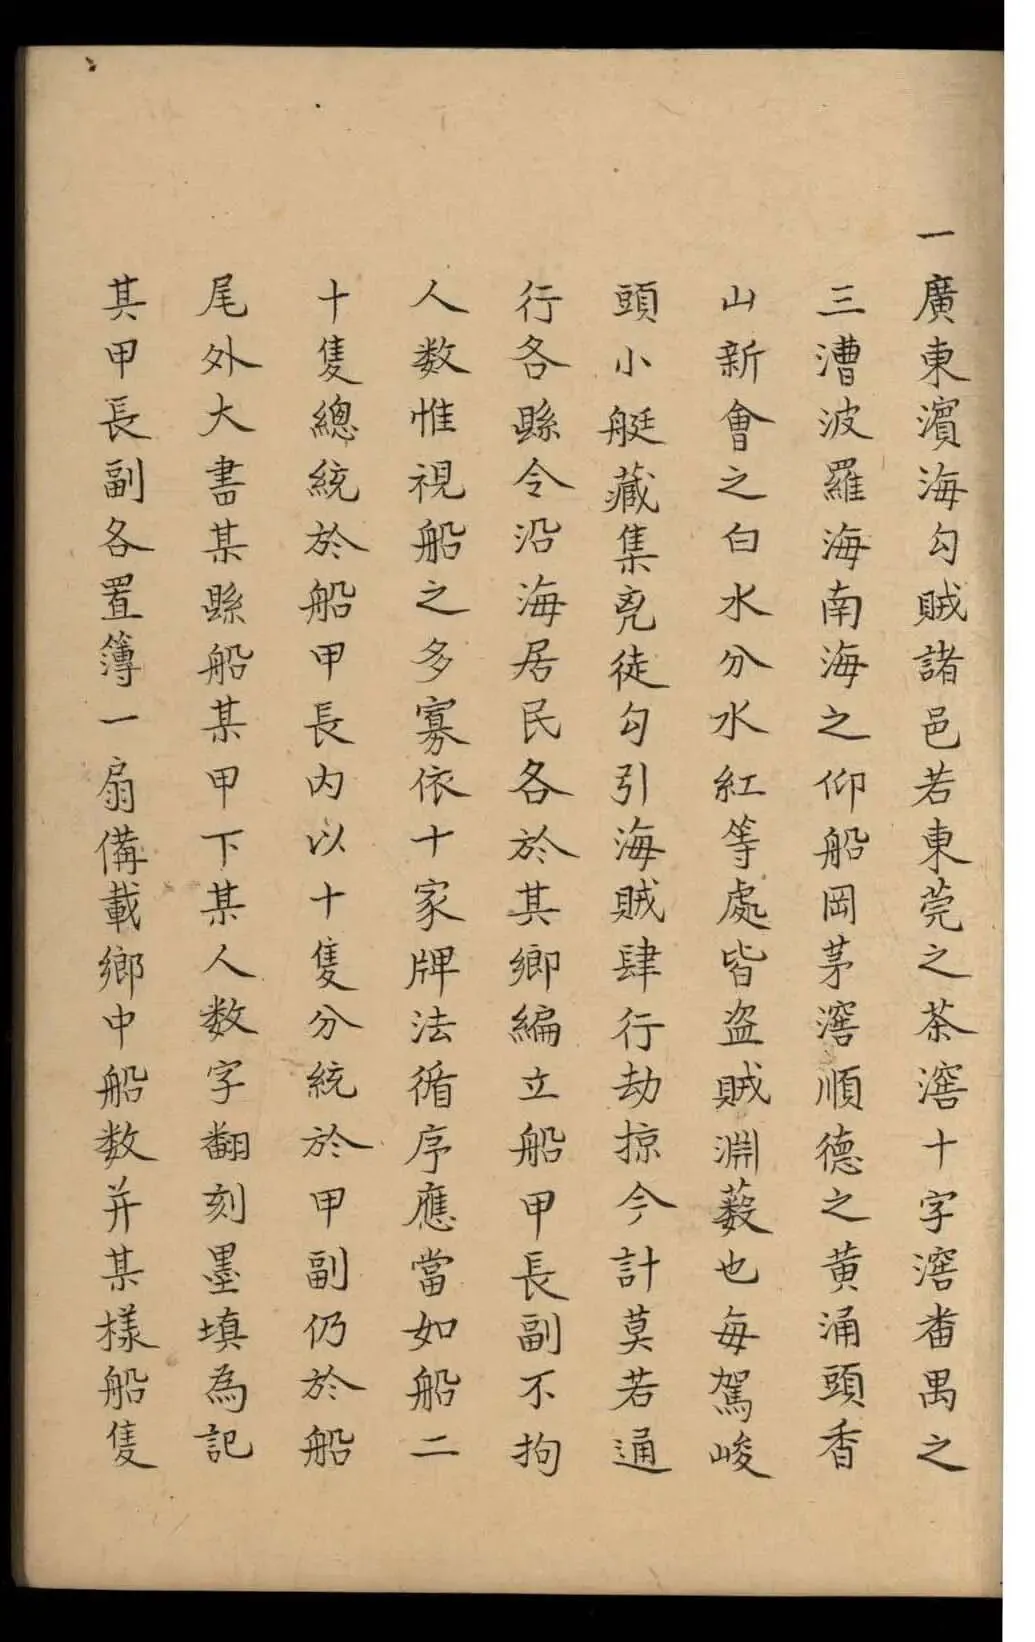 一廣東濱海勾賊諸邑若東莞之茶滘十字滘畨禺之
三漕波羅海南海之仰船岡茅滘順德之黄涌頭香
山新會之白水分水紅等處皆盗賊淵藪也每駕峻
頭小艇藏集兇徒勾引海賊肆行劫掠今計莫若通
行各縣令沿海居民各於其鄉編立船甲長副不拘
人数惟視船之多寡依十家牌法循序應當如船二
十隻總統於船甲長内以十隻分統於甲副仍於船
尾外大書某縣船某甲下某人数字翻刻墨填為記
其甲長副各置簿一扇備載鄉中船数并某樣船隻